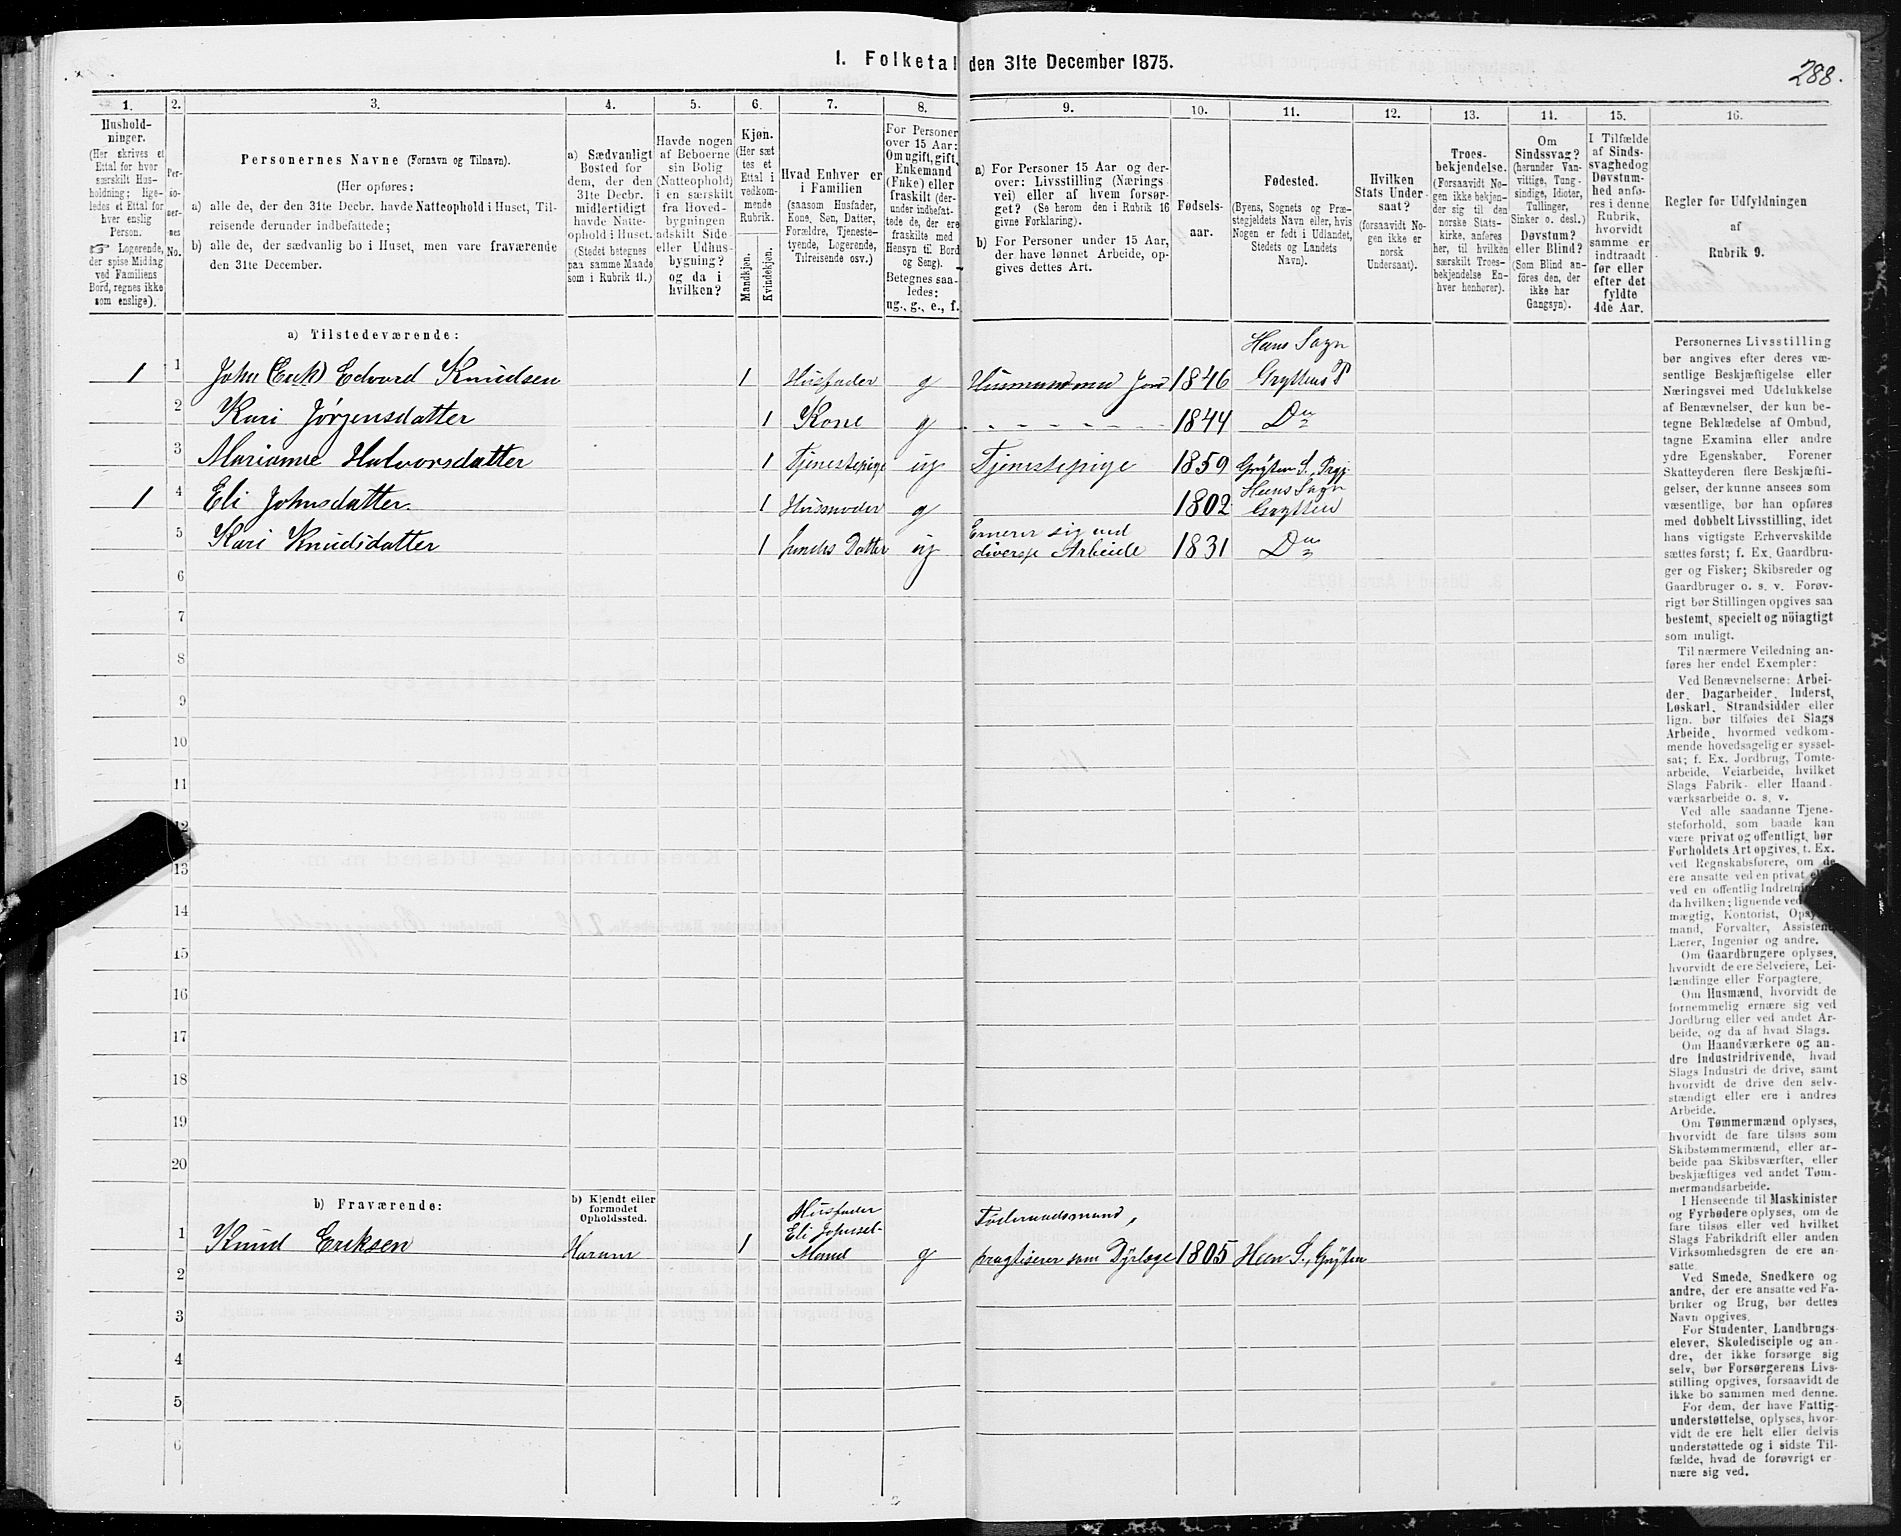 1. Folketal den 31te December 1875.
288.
1.
2.
3.
4.
5.
6.
7.
8.
9.
10.
11.
12.
13.
14.
15.
16.
Hushold-
ninger.
(Her skrives et
Ettal for hver
særskilt Hus-
holdning; lige-
ledes et Ettal for
hver enslig
Person.
☞ Logerende,
der spise Middag
ved Familiens
Bord, regnes ikke
som enslige).
Per-
so-
ner-
nes
No.
Personernes Navne (Fornavn og Tilnavn).
(Her opføres:
a) alle de, der den 31te Decbr. havde Natteophold i Huset, Til-
reisende derunder indbefattede;
b) alle de, der sædvanlig bo i Huset, men vare fraværende
den 31te December.
a) Sædvanligt
Bosted for
dem, der den
31te Decbr.
midlertidigt
havde Natte-
ophold i Huset.
(Stedet betegnes
paa samme Maade
som i Rubrik 11.)
Havde nogen
af Beboerne
sin Bolig
(Natteophold)
i en særskilt
fra Hoved-
bygningen
adskilt Side-
eller Udhus-
bygning?
og da i
hvilken?
Kjøn.
(Her sæt-
tes et
Ettal i
vedkom-
mende
Rubrik.
Mandkjøn.
Kvindekjøn.
Hvad Enhver er
i Familien
(saasom Husfader,
Kone, Søn, Datter,
Forældre, Tjeneste-
tyende, Logerende,
Tilreisende osv.)
For Personer
over 15 Aar:
Om ugift, gift,
Enkemand
(Enke) eller
fraskilt (der-
under indbefat-
tede de, der ere
fraskilte med
Hensyn til Bord
og Seng).
Betegnes saa-
ledes:
ug., g., e., f.
a) For Personer 15 Aar og der-
over: Livsstilling (Nærings-
vei) eller af hvem forsør-
get? (Se herom den i Rubrik 16
givne Forklaring).
b) For Personer under 15 Aar,
der have lønnet Arbeide, op-
gives dettes Art.
Fødsels-
aar.
Fødested.
(Byens, Sognets og Præ-
stegjeldets Navn eller, hvis
Nogen er født i Udlandet,
Stedets og Landets
Navn).
Hvilken
Stats Under-
saat?
(forsaavidt No-
gen ikke er
norsk
Undersaat).
Troes-
bekjendelse.
(Forsaavidt No-
gen ikke bekjen-
der sig til den
norske Stats-
kirke, anføres
her, til hvilken
særskilt Troes-
bekjendelse En-
hver henhører).
Om
Sindssvag?
(herunder Van-
vittige, Tung-
sindige, Idioter,
Tullinger,
Sinker o. desl.)
Døvstum?
eller Blind?
(Som Blind an-
føres den, der
ikke har
Gangsyn).
I Tilfælde
af Sinds-
svaghed og
Døvstum-
hed anfø-
res i denne
Rubrik,
hvorvidt
samme er
indtraadt
før eller
efter det
fyldte
4de Aar.
Regler for Udfyldningen
af
Rubrik 9.
a) Tilstedeværende:
Hens Sogn
1 1 John (Erik) Edvard Knudsen 1 Husfader g Husmand med Jord 1846 Gryttens P
2 Kari Jørgensdatter 1 Kone g - - - - - - - 1844 Do
3 Marianne Halvorsdatter 1 Tjenestepige ug Tjenestepige 1859 Grytten S., Prgj.
Hens Sogn
1 4 Eli Johnsdatter. 1 Husmoder g 1802 Grytten
Ernærer sig ved
5 Kari Knudsdatter 1 hendes Datter ug diverse Arbeide 1831 Do
6
7
8
9
10
11
12
13
14
15
16
17
18
19
20
b) Fraværende:
b) Kjendt eller
formodet
Opholdssted.
Husfader
Eli Johnsdt- Føderaadsmand,
1 Knud Eriksen Haram 1 Mand g pragtiserer som Dyrlæge 1805 Heen S., Grytten
2
3
4
5
6
Personernes Livsstilling
bør angives efter deres væ-
sentlige Beskjæftigelse eller
Næringsvei med Udelukkelse
af Benævnelser, der kun be-
tegne Beklædelse af Ombud,
tagne Examina eller andre
ydre Egenskaber. Forener
Skatteyderen flere Beskjæfti-
gelser, der kunne ansees som
væsentlige, bør han opføres
med dobbelt Livsstilling, idet
hans vigtigste Erhvervskilde
sættes først; f. Ex. Gaardbru-
ger og Fisker; Skibsreder og
Gaardbruger o. s. v. Forøv-
rigt bør Stillingen opgives saa
bestemt, specielt og nöiagtigt
som muligt.
Til nærmere Veiledning an-
føres her endel Exempler:
Ved Benævnelserne: Arbei-
der, Dagarbeider, Inderst,
Løskarl, Strandsidder eller
lign. bør tilføies det Slags
Arbeide, hvormed vedkom-
mende hovedsagelig er syssel-
sat; f. Ex. Jordbrug, Tomte-
arbeide, Veiarbeide, hvilket
Slags Fabrik- eller Haand-
værksarbeide o. s. v.
Ved alle saadanne Tjene-
steforhold, som baade kan
være privat og offentligt, bør
Forholdets Art opgives, t. Ex.
ved Regnskabsførere, om de
ere ansatte ved en privat
ved en offentlig
da hvilken; lignende ved
mægtig, Kontorist,
mand, Forvalter,
Lærer, Ingeniør og andre.
Om Gaardbrugere oplyses,
hvorvidt de ere Selveiere, Lei-
lændinge eller Forpagtere.
Om Husmænd, hvorvidt de
fornemmelig ernære sig ved
Jordbrug eller ved andet Ar-
beide, og da af hvad Slags.
Om Haandværkere og an-
dre Industridrivende, hvad
Slags Industri de drive, samt
hvorvidt de drive den selv-
stændigt eller ere i andres
Arbeide.
Om Tømmermænd oplyses,
hvorvidt de fare tilsøs som
Skibstømmermænd, eller ar-
beide paa Skibsværfter, eller
beskjæftiges ved andet Tøm-
mermandsarbeide.
I Henseende til Maskinister
og Fyrbødere oplyses, om de
fare tilsøs eller ved hvilket
Slags Fabrikdrift eller anden
Virksomhedsgren de ere an-
satte.
Ved Smede, Snedkere og
andre, der ere ansatte ved Fa-
briker og Brug, bør dettes
Navn opgives.
For Studenter, Landbrugs-
elever, Skoledisciple og an-
dre, der ikke forsørge sig
selv, bør Forsørgerens Livs-
stilling opgives, forsaavidt de
ikke bo sammen med denne.
For dem, der have Fattig-
understøttelse, oplyses, hvor-
vidt de ere helt eller delvis
understøttede og i sidste Til-
fælde, hvad de forøvrigt er-
nære sig ved.